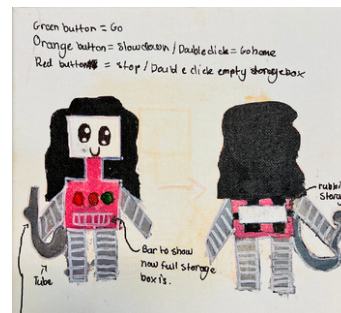 Green button = Go
Orange button = Slow down / Double click = Go home
Red button = stop / Double click empty storage box
rubbi
Stora
Bar to show
how full storage
box is.
Tube